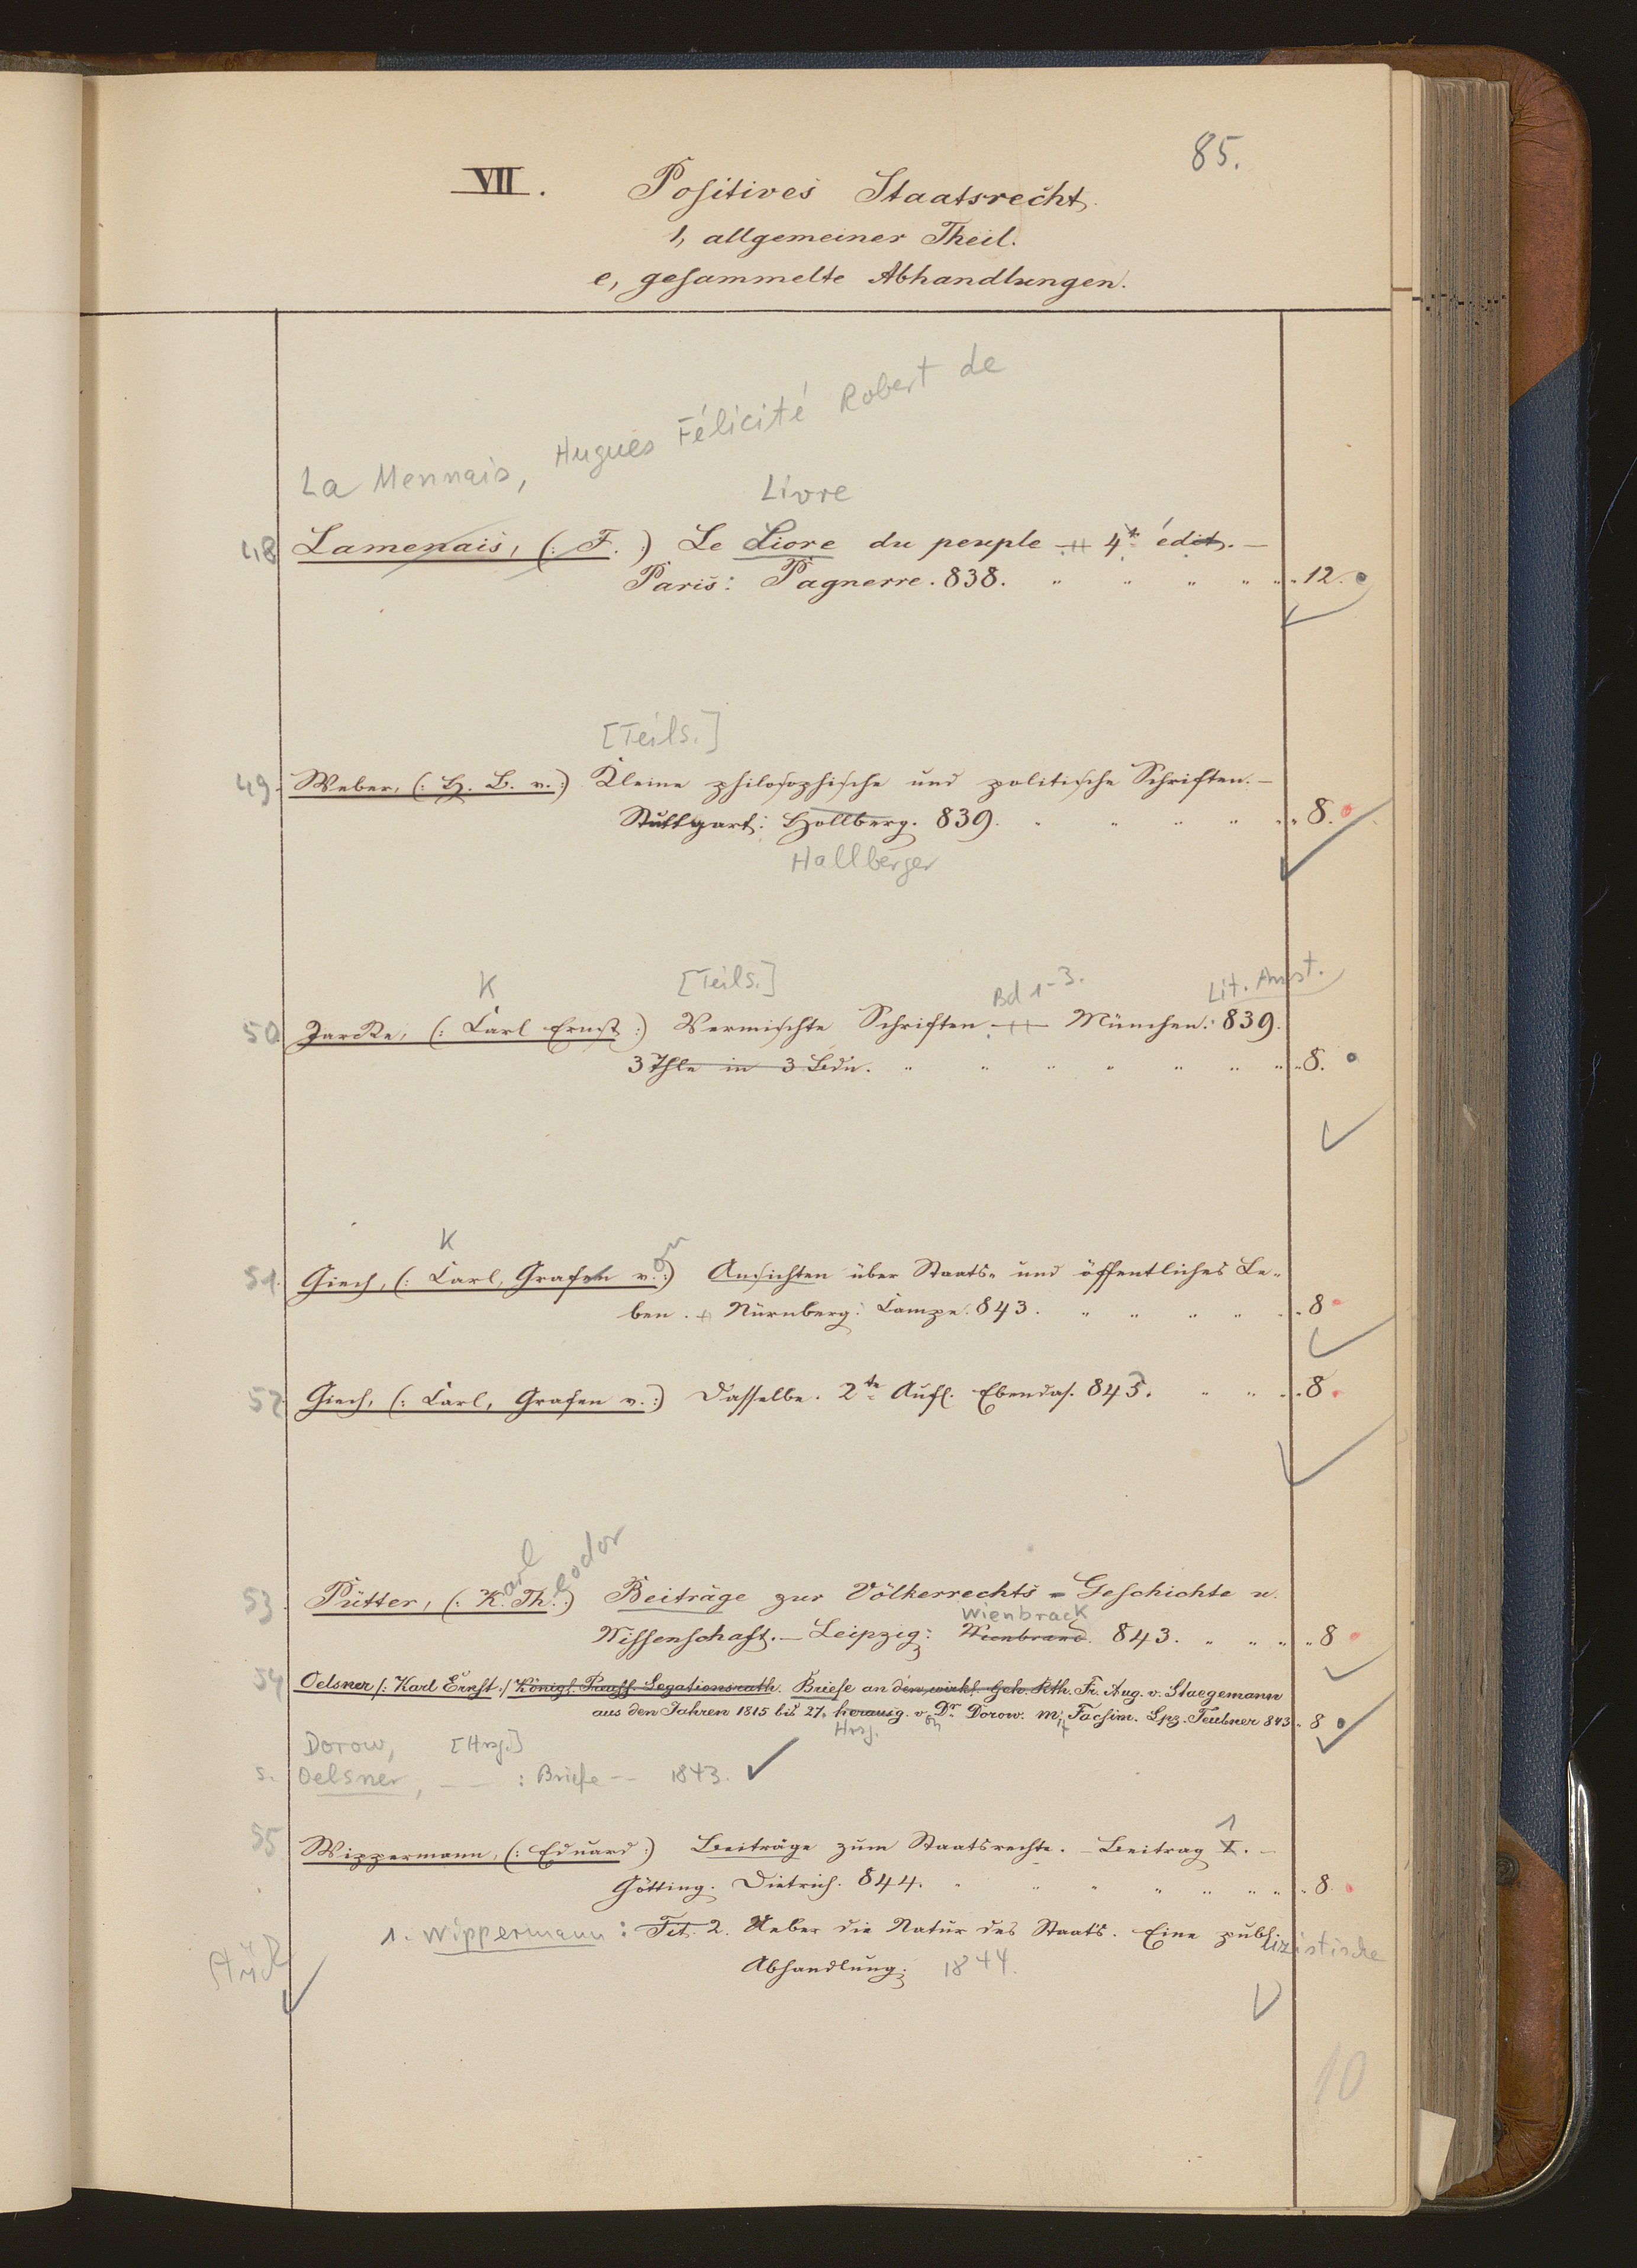 85.
VII. Positives Staatsrecht.
1, allgemeiner Theil.
e, gesammelte Abhandlungen.
La Mennais, Hugues Félicité Robert de
Livre
48 Lamenais, (: F. :) Le Livre du peuple 4e édit. —
Paris: Pagnerre. 838. " " " " " " 12.
[Teils.]
49. Weber, (: H. B. v. :) Kleine philosophische und politische Schriften. —
Stuttgart: Hollberg. 839. " " " " " " 8.
Hallberger
K [Teils.] Bd 1-3. Lit. Anst.
50. Jarcke, (: Carl Ernst :) Vermischte Schriften. München: 839.
3 Thle in 3 Bdn. " " " " " " " 8.
K on
51. Giech, (: Carl, Grafen v. :) Ansichten über Staats- und öffentliches Le-
ben. Nürnberg: Campe. 843. " " " " " 8
52. Giech, (: Carl, Grafen v. :) Dasselbe. 2te Aufl. Ebendas. 843. " " " 8.
arl eodor
53. Pütter, (: K. Th. :) Beiträge zur Völkerrechts-Geschichte u.
Wienbrack
Wissenschaft. — Leipzig: Wienbrand. 843. " " " " 8
54 Oelsner /: Karl Ernst :/ Königl. Preuss. Legationsrath. Briefe an den wirkl. Geh. Rth. Fr. Aug. v. Staegemann
aus den Jahren 1815 bis 27. herausg. v. Dr. Dorow. m. Facsim. Lpz. Teubner 843 " 8
Hrsg. on it
Dorow, [Hrsg.]
s. Oelsner, — : Briefe — 1843.
1
55 Wippermann, (: Eduard :) Beiträge zum Staatsrechte. — Beitrag I. —
Götting. Dietrich. 844. " " " " " " " 8.
1. Wippermann: Tit. 2. Ueber die Natur des Staats. Eine publizistische
Stück Abhandlung. 1844.
10